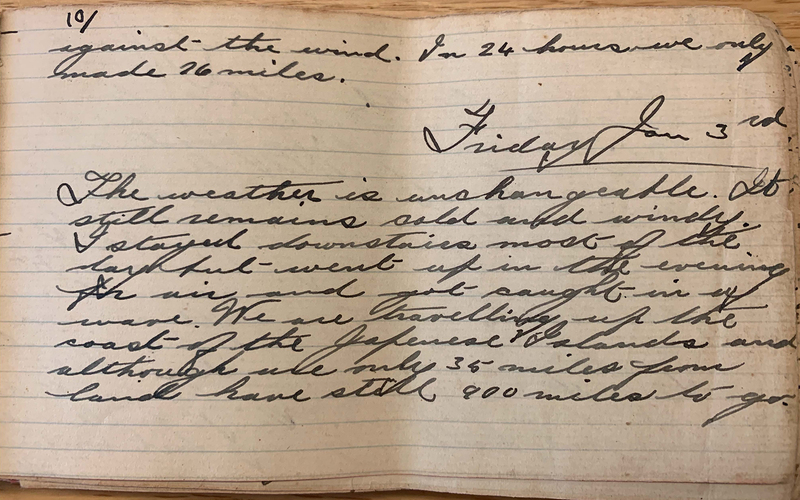 10/
against the wind. In 24 hours we only
made 76 miles.
Friday Jan 3rd
The weather is unchangeable. It
still remains cold and windy.
I stayed downstairs most of the
day but went up in the evening
for air and got caught in a
wave. We are travelling up the
coast of the Japenese Islands and
although we only 35 miles from
land have still 900 miles to go.